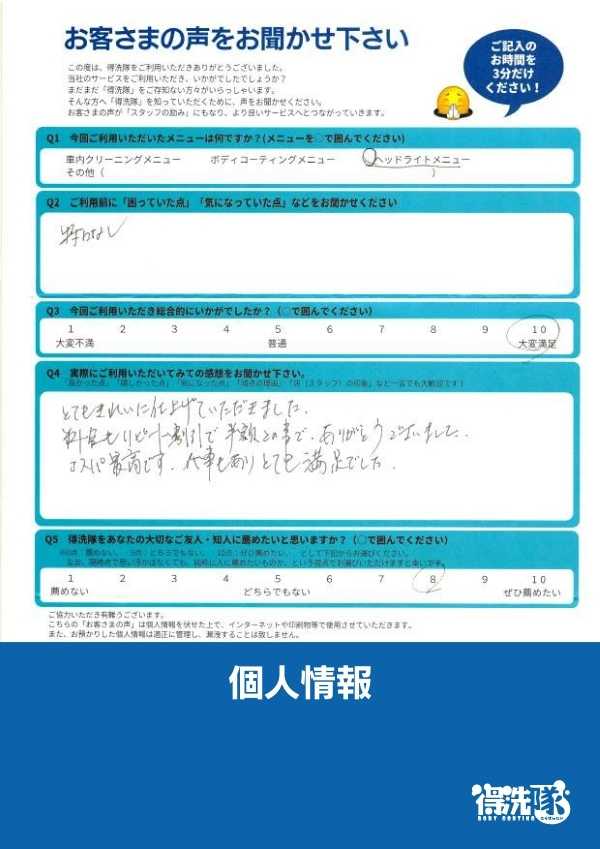 お客さまの声をお聞かせ下さい
ご記入の
お時間を
3分だけ
ください！
この度は、得洗隊をご利用いただきありがとうございました。
当社のサービスをご利用いただき、いかがでしたでしょうか？
まだまだ「得洗隊」をご存知ない方々がいらっしゃいます。
そんな方へ「得洗隊」を知っていただくために、声をお聞かせください。
お客さまの声が「スタッフの励み」にもなり、より良いサービスへとつながっていきます。
Q1 今回ご利用いただいたメニューは何ですか？(メニューを○で囲んでください)
車内クリーニングメニュー ボディコーティングメニュー ヘッドライトメニュー
その他（ ）
Q2 ご利用前に「困っていた点」「気になっていた点」などをお聞かせください
特になし
Q3 今回ご利用いただき総合的にいかがでしたか？（○で囲んでください）
1 2 3 4 5 6 7 8 9 10
大変不満 普通 大変満足
Q4 実際にご利用いただいてみての感想をお聞かせ下さい。
「良かった点」「嬉しかった点」「気になった点」「満点の理由」「店（スタッフ）の印象」など一言でも大歓迎です！
とてもきれいに仕上げていただきました。
料金もリピート割引で半額との事で、ありがとうございました。
コスパ最高です。代車もありとても満足でした。
Q5 得洗隊をあなたの大切なご友人・知人に薦めたいと思いますか？（○で囲んでください）
※0点：薦めない、 5点：どちらでもない、 10点：ぜひ薦めたい、 として下記からお選びください。
1 2 3 4 5 6 7 8 9 10
薦めない どちらでもない ぜひ薦めたい
ご協力いただき有難うございます。
こちらの「お客さまの声」は個人情報を伏せた上で、インターネットや印刷物等で使用させていただきます。
また、お預かりした個人情報は適正に管理し、漏洩することは致しません。
個人情報
得洗隊
BODY COATING